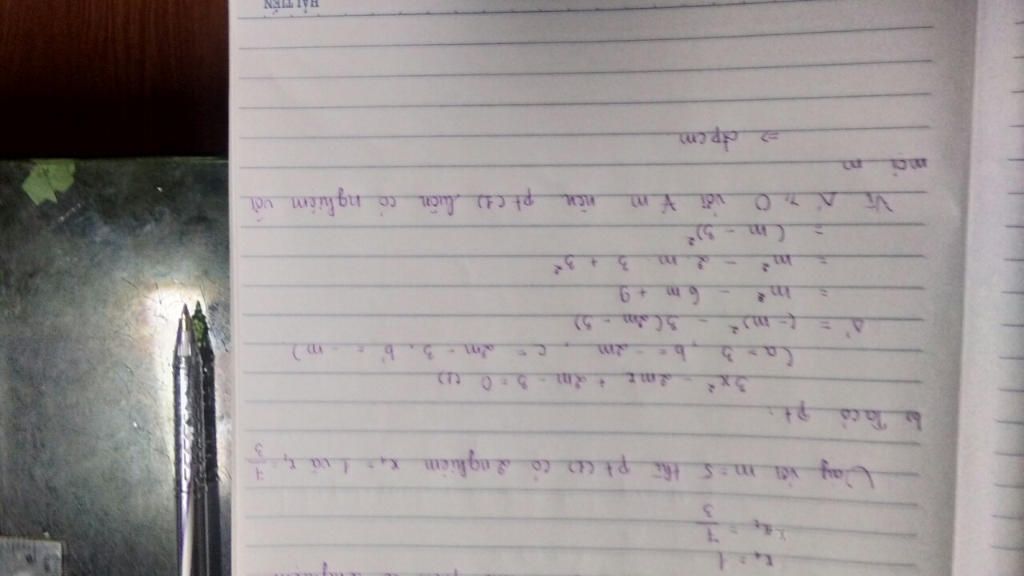 x₁ = 1
x₂ = 7/3
Vậy với m = 5 thì pt (1) có 2 nghiệm x₁ = 1 và x₂ = 7/3
b, Ta có pt:
3x² - 2mx + 2m - 3 = 0 (1)
(a = 3, b = -2m, c = 2m - 3, b' = -m)
Δ' = (-m)² - 3(2m - 3)
= m² - 6m + 9
= m² - 2.m.3 + 3²
= (m - 3)²
Vì Δ' ≥ 0 với ∀ m nên pt (1) luôn có nghiệm với
mọi m
⇒ đpcm
HẢI TIẾN